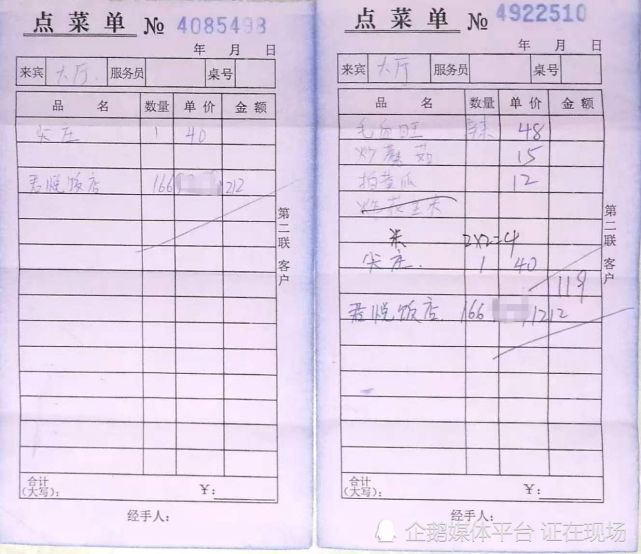 点菜单 № 4085498
年 月 日
来宾 大厅 服务员 桌号
品名 数量 单价 金额
尖庄 1 40
君悦饭店 166 1212
第二联 客户
合计
(大写): ¥:
经手人:
点菜单 № 4922510
年 月 日
来宾 大厅 服务员 桌号
品名 数量 单价 金额
毛血旺 48
炒蘑菇 15
拍黄瓜 12
米 2×2=4
尖庄. 1 40
119
君悦饭店. 166 1212
第二联 客户
合计
(大写): ¥:
经手人:
企鹅媒体平台 证在现场